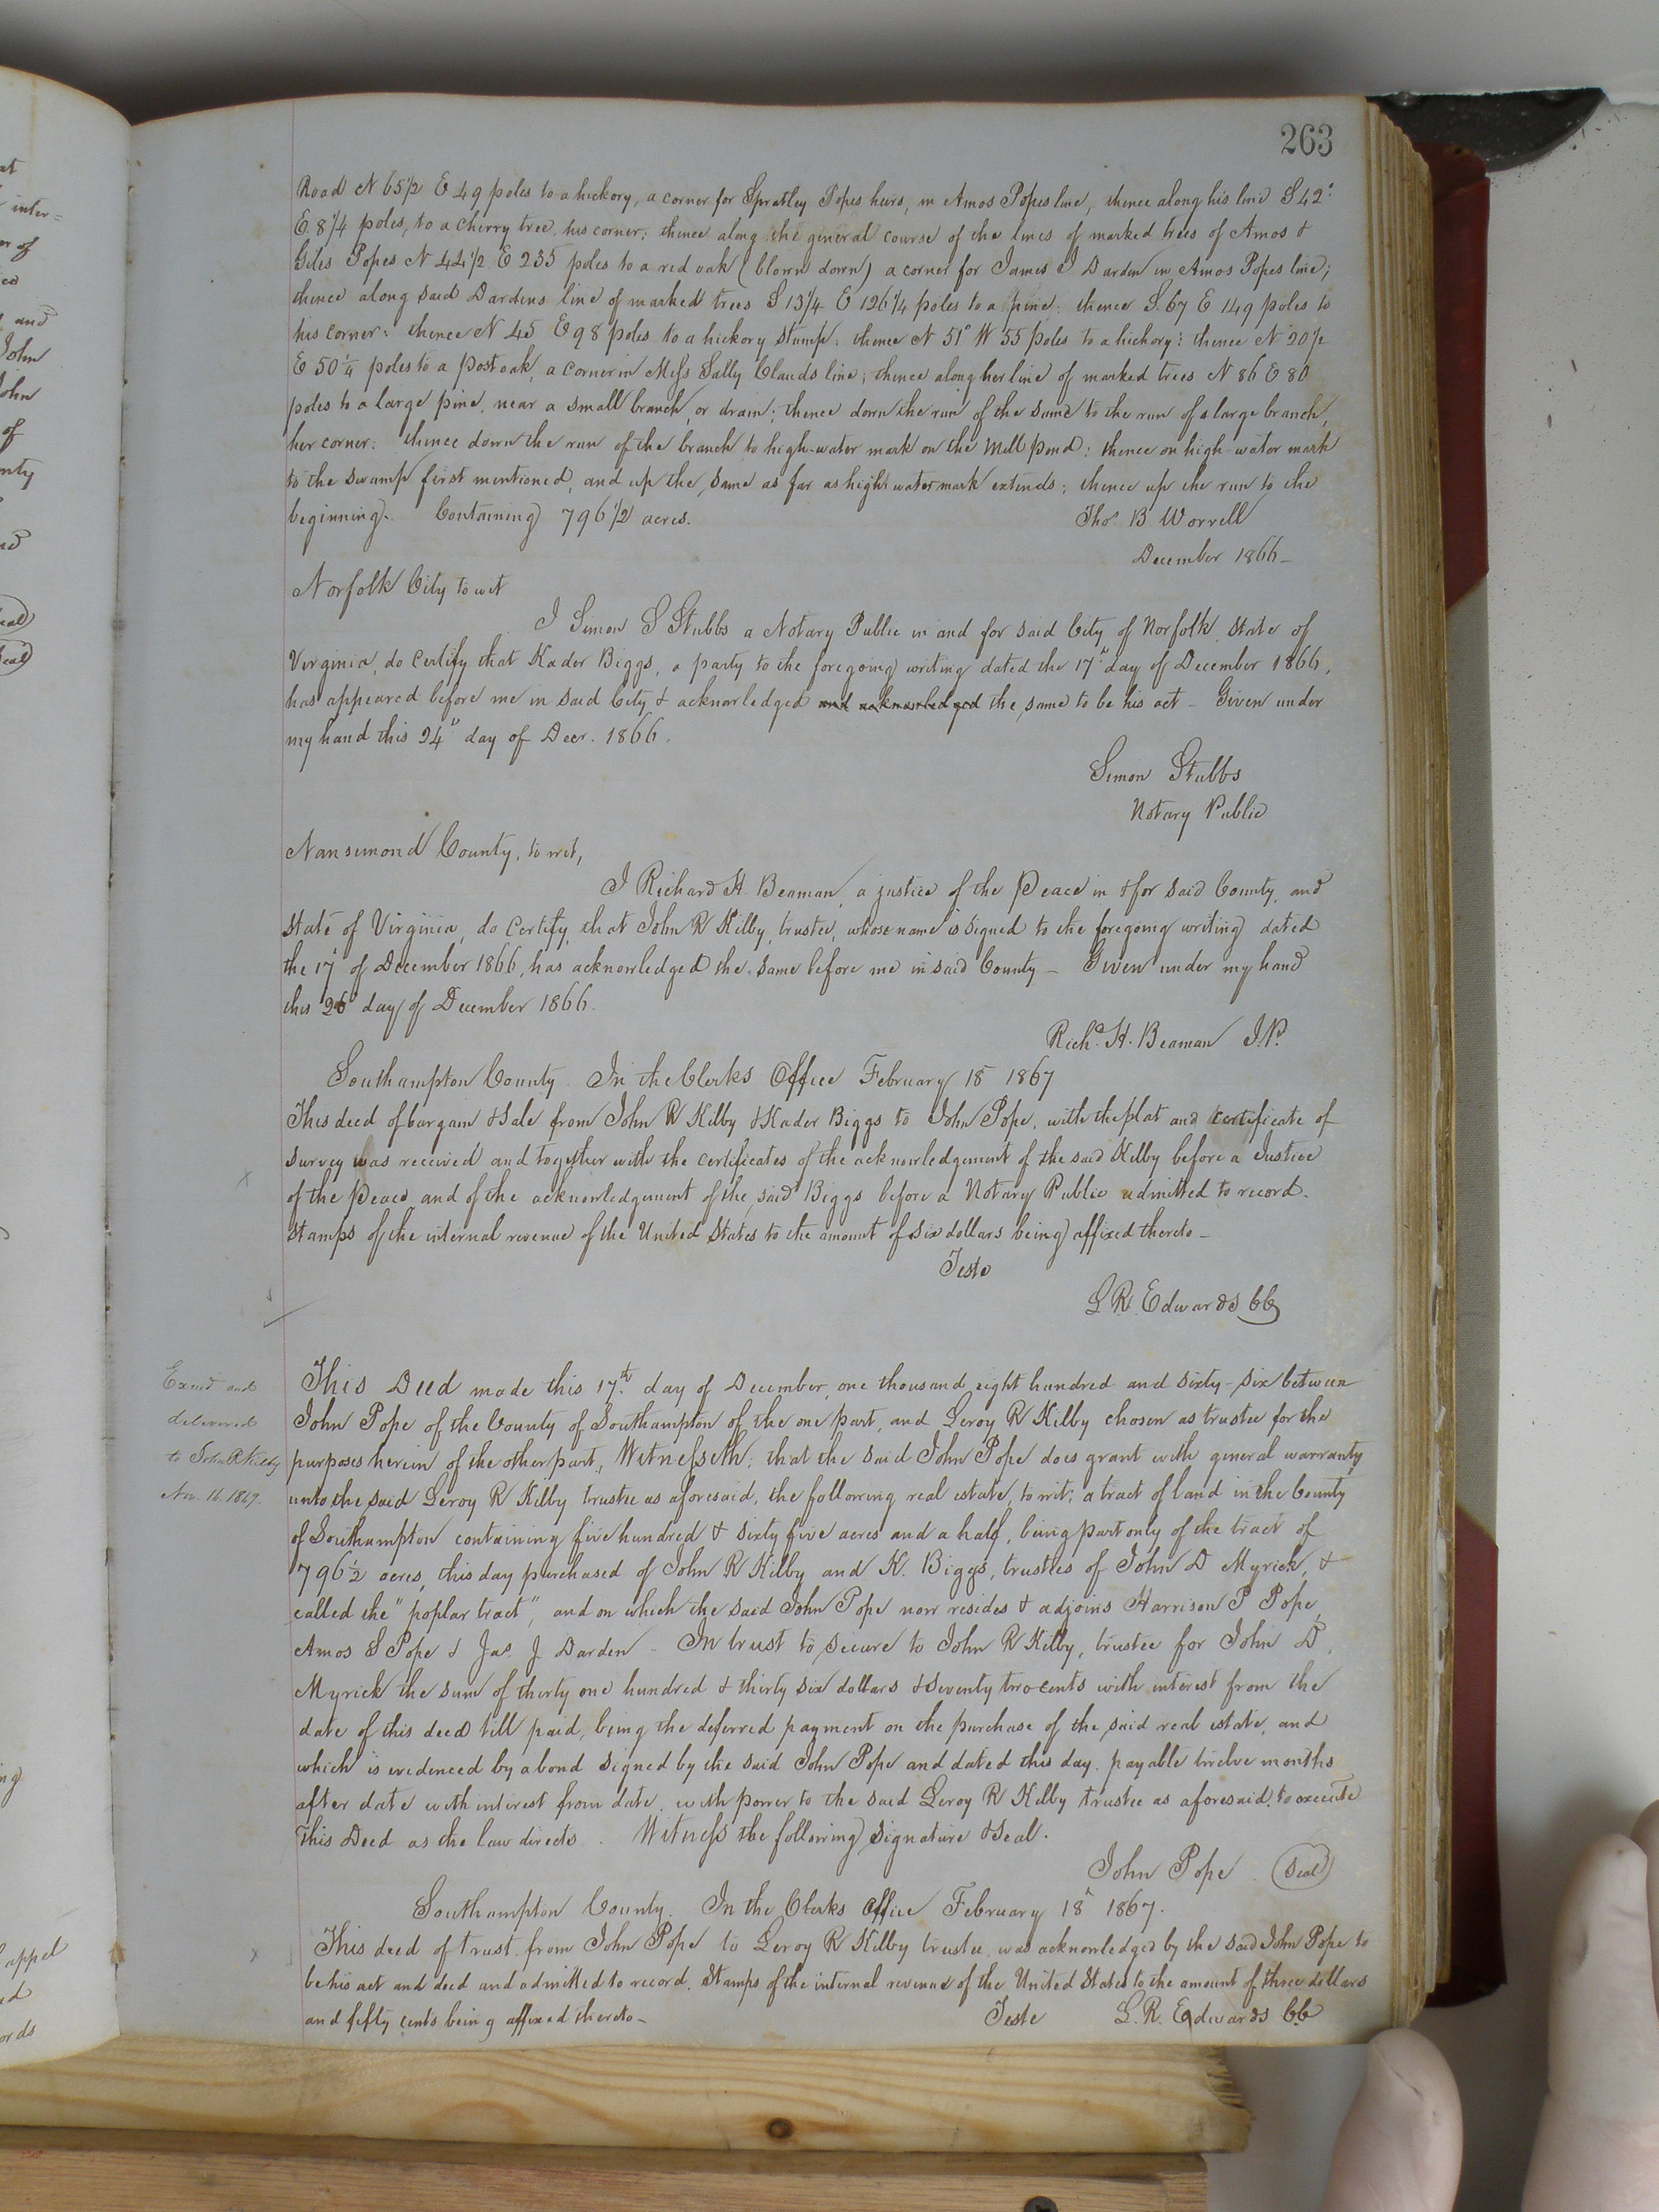 263
Road N 65 1/2 E 49 poles to a hickory, a corner for Spratley Popes heirs, in Amos Popes line, thence along his line S 42°
E. 8 1/4 poles, to a cherry tree, his corner; thence along the general course of the lines of marked trees of Amos &
Giles Popes N 44 1/2 E 235 poles to a red oak (blown down) a corner for James J Darden in Amos Popes line;
thence along said Dardens line of marked trees S 13 1/4 E 126 1/4 poles to a pine: thence S. 67 E 149 poles to
his corner: thence N 45 E 98 poles to a hickory stump: thence N 51° W 55 poles to a hickory: thence N 20 1/2
E 50 1/4 poles to a post oak, a corner in Miss Sally Clauds line; thence along her line of marked trees N 86 E 80
poles to a large pine, near a small branch, or drain; thence down the run of the same to the run of a large branch,
her corner: thence down the run of the branch to high-water mark on the Mill pond: thence on high water mark
to the swamp first mentioned, and up the same as far as high water mark extends; thence up the run to the
beginning. Containing 796 1/2 acres. Tho.s B Worrell
December 1866 -
Norfolk City to wit
I Simon S Stubbs a Notary Public in and for said City of Norfolk, State of
Virginia, do Certify that Kader Biggs, a party to the foregoing writing dated the 17th day of December 1866,
has appeared before me in said City & acknowledged and acknowledged the same to be his act - Given under
my hand this 24th day of Decr. 1866.
Simon Stubbs
Notary Public
Nansemond County, to wit,
I Richard H. Beaman, a justice of the Peace in & for said County, and
State of Virginia, do Certify, that John R Kilby, trustee, whose name is signed to the foregoing writing dated
the 17th of December 1866, has acknowledged the same before me in said County - Given under my hand
this 26 day of December 1866.
Richd. H. Beaman J.P.
Southampton County. In the Clerks Office February 18 1867
This deed of bargain & Sale from John R Kilby & Kader Biggs to John Pope, with the plat and certificate of
survey was received and together with the certificates of the acknowledgement of the said Kilby before a Justice
of the Peace, and of the acknowledgement of the said Biggs before a Notary Public admitted to record.
Stamps of the internal revenue of the United States to the amount of six dollars being affixed thereto -
Teste
L. R. Edwards CC
Exmd and
delivered
to John R Kilby
Nov. 16. 1869.
This Deed made this 17.th day of December, one thousand eight hundred and sixty-six between
John Pope of the County of Southampton of the one part, and Leroy R Kilby chosen as trustee for the
purposes herein of the other part, Witnesseth; that the said John Pope does grant with general warranty
unto the said Leroy R Kilby trustee as aforesaid, the following real estate, to wit; a tract of land in the County
of Southampton containing five hundred & sixty five acres and a half, being part only of the tract of
796 1/2 acres, this day purchased of John R Kilby and K. Biggs, trustees of John D Myrick, &
called the "poplar tract", and on which the said John Pope now resides & adjoins Harrison P Pope,
Amos S Pope & Jas. J Darden - In trust to secure to John R Kilby, trustee for John D.
Myrick the sum of thirty one hundred & thirty six dollars & seventy two cents with interest from the
date of this deed till paid, being the deferred payment on the purchase of the said real estate, and
which is evidenced by a bond signed by the said John Pope and dated this day. payable twelve months
after date with interest from date, with power to the said Leroy R Kilby trustee as aforesaid, to execute
This Deed as the law directs. Witness the following signature & Seal.
John Pope (Seal)
Southampton County. In the Clerks Office February 18th 1867.
This deed of trust from John Pope to Leroy R Kilby trustee, was acknowledged by the said John Pope to
be his act and deed and admitted to record. Stamps of the internal revenue of the United States to the amount of three dollars
and fifty cents being affixed thereto - Teste L. R. Edwards CC